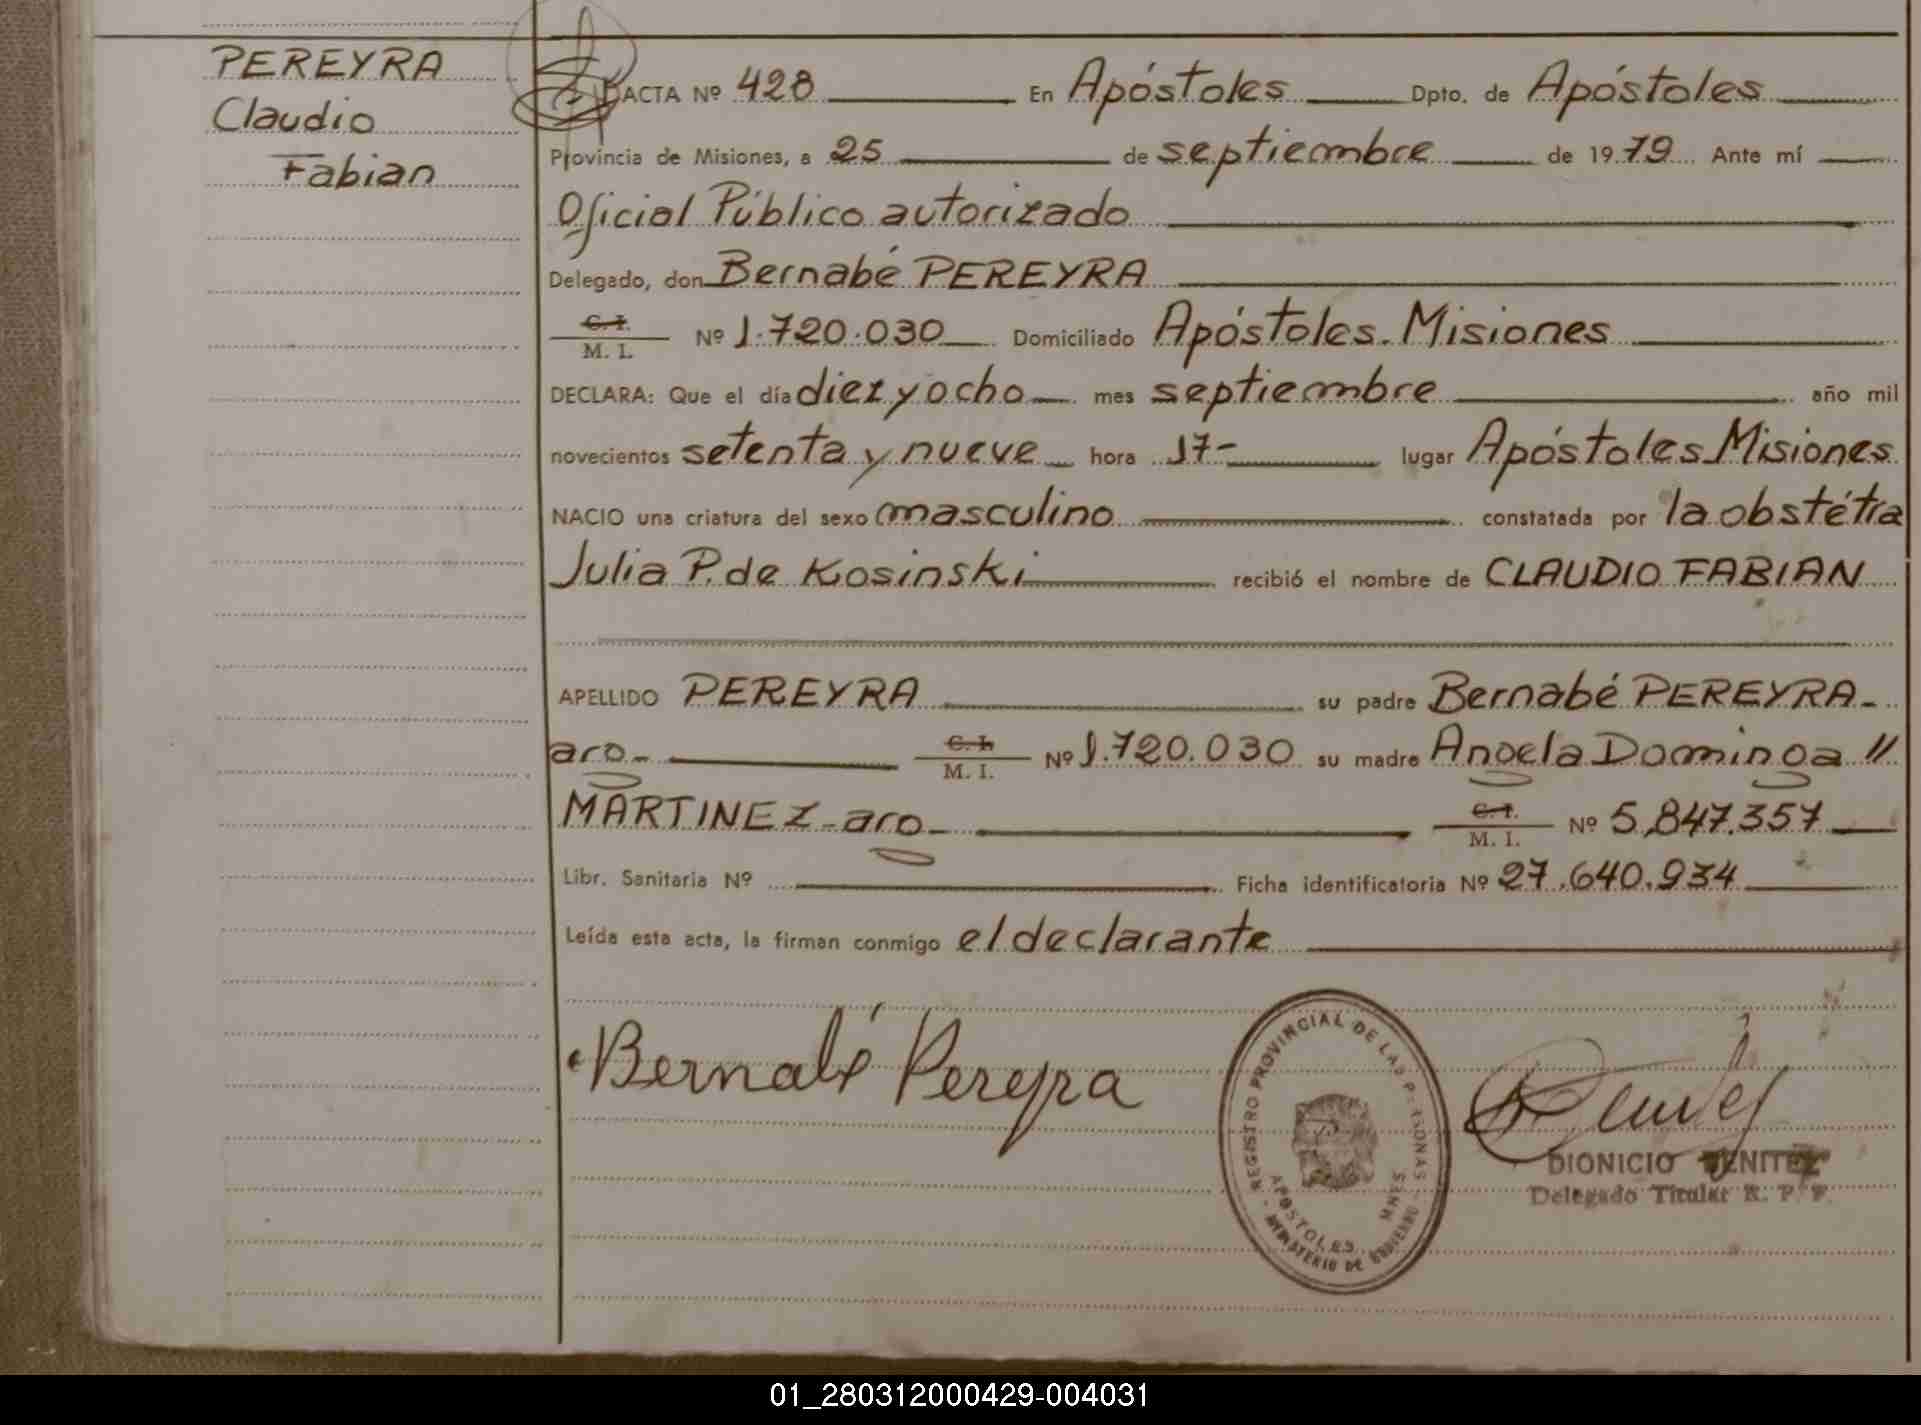 PEREYRA
Claudio
Fabian
ACTA Nº 428 En Apóstoles Dpto. de Apóstoles
Provincia de Misiones, a 25 de septiembre de 1979 Ante mí
Oficial Público autorizado
Delegado, don Bernabé PEREYRA
C. I.
M. I. Nº 1.720.030 Domiciliado Apóstoles. Misiones
DECLARA: Que el día diez y ocho mes septiembre año mil
novecientos setenta y nueve hora 17- lugar Apóstoles Misiones
NACIO una criatura del sexo masculino constatada por la obstétra
Julia P. de Kosinski recibió el nombre de CLAUDIO FABIAN
APELLIDO PEREYRA su padre Bernabé PEREYRA-
arg- C. I.
M. I. Nº 1.720.030 su madre Angela Dominga //
MARTINEZ-arg- C. I.
M. I. Nº 5,847.357
Libr. Sanitaria Nº Ficha identificatoria Nº 27.640.934
Leída esta acta, la firman conmigo el declarante
Bernabé Pereyra
REGISTRO PROVINCIAL DE LAS PERSONAS
APOSTOLES MNES.
MINISTERIO DE GOBIERNO
DIONICIO BENITEZ
Delegado Titular R. P. P.
01_280312000429-004031